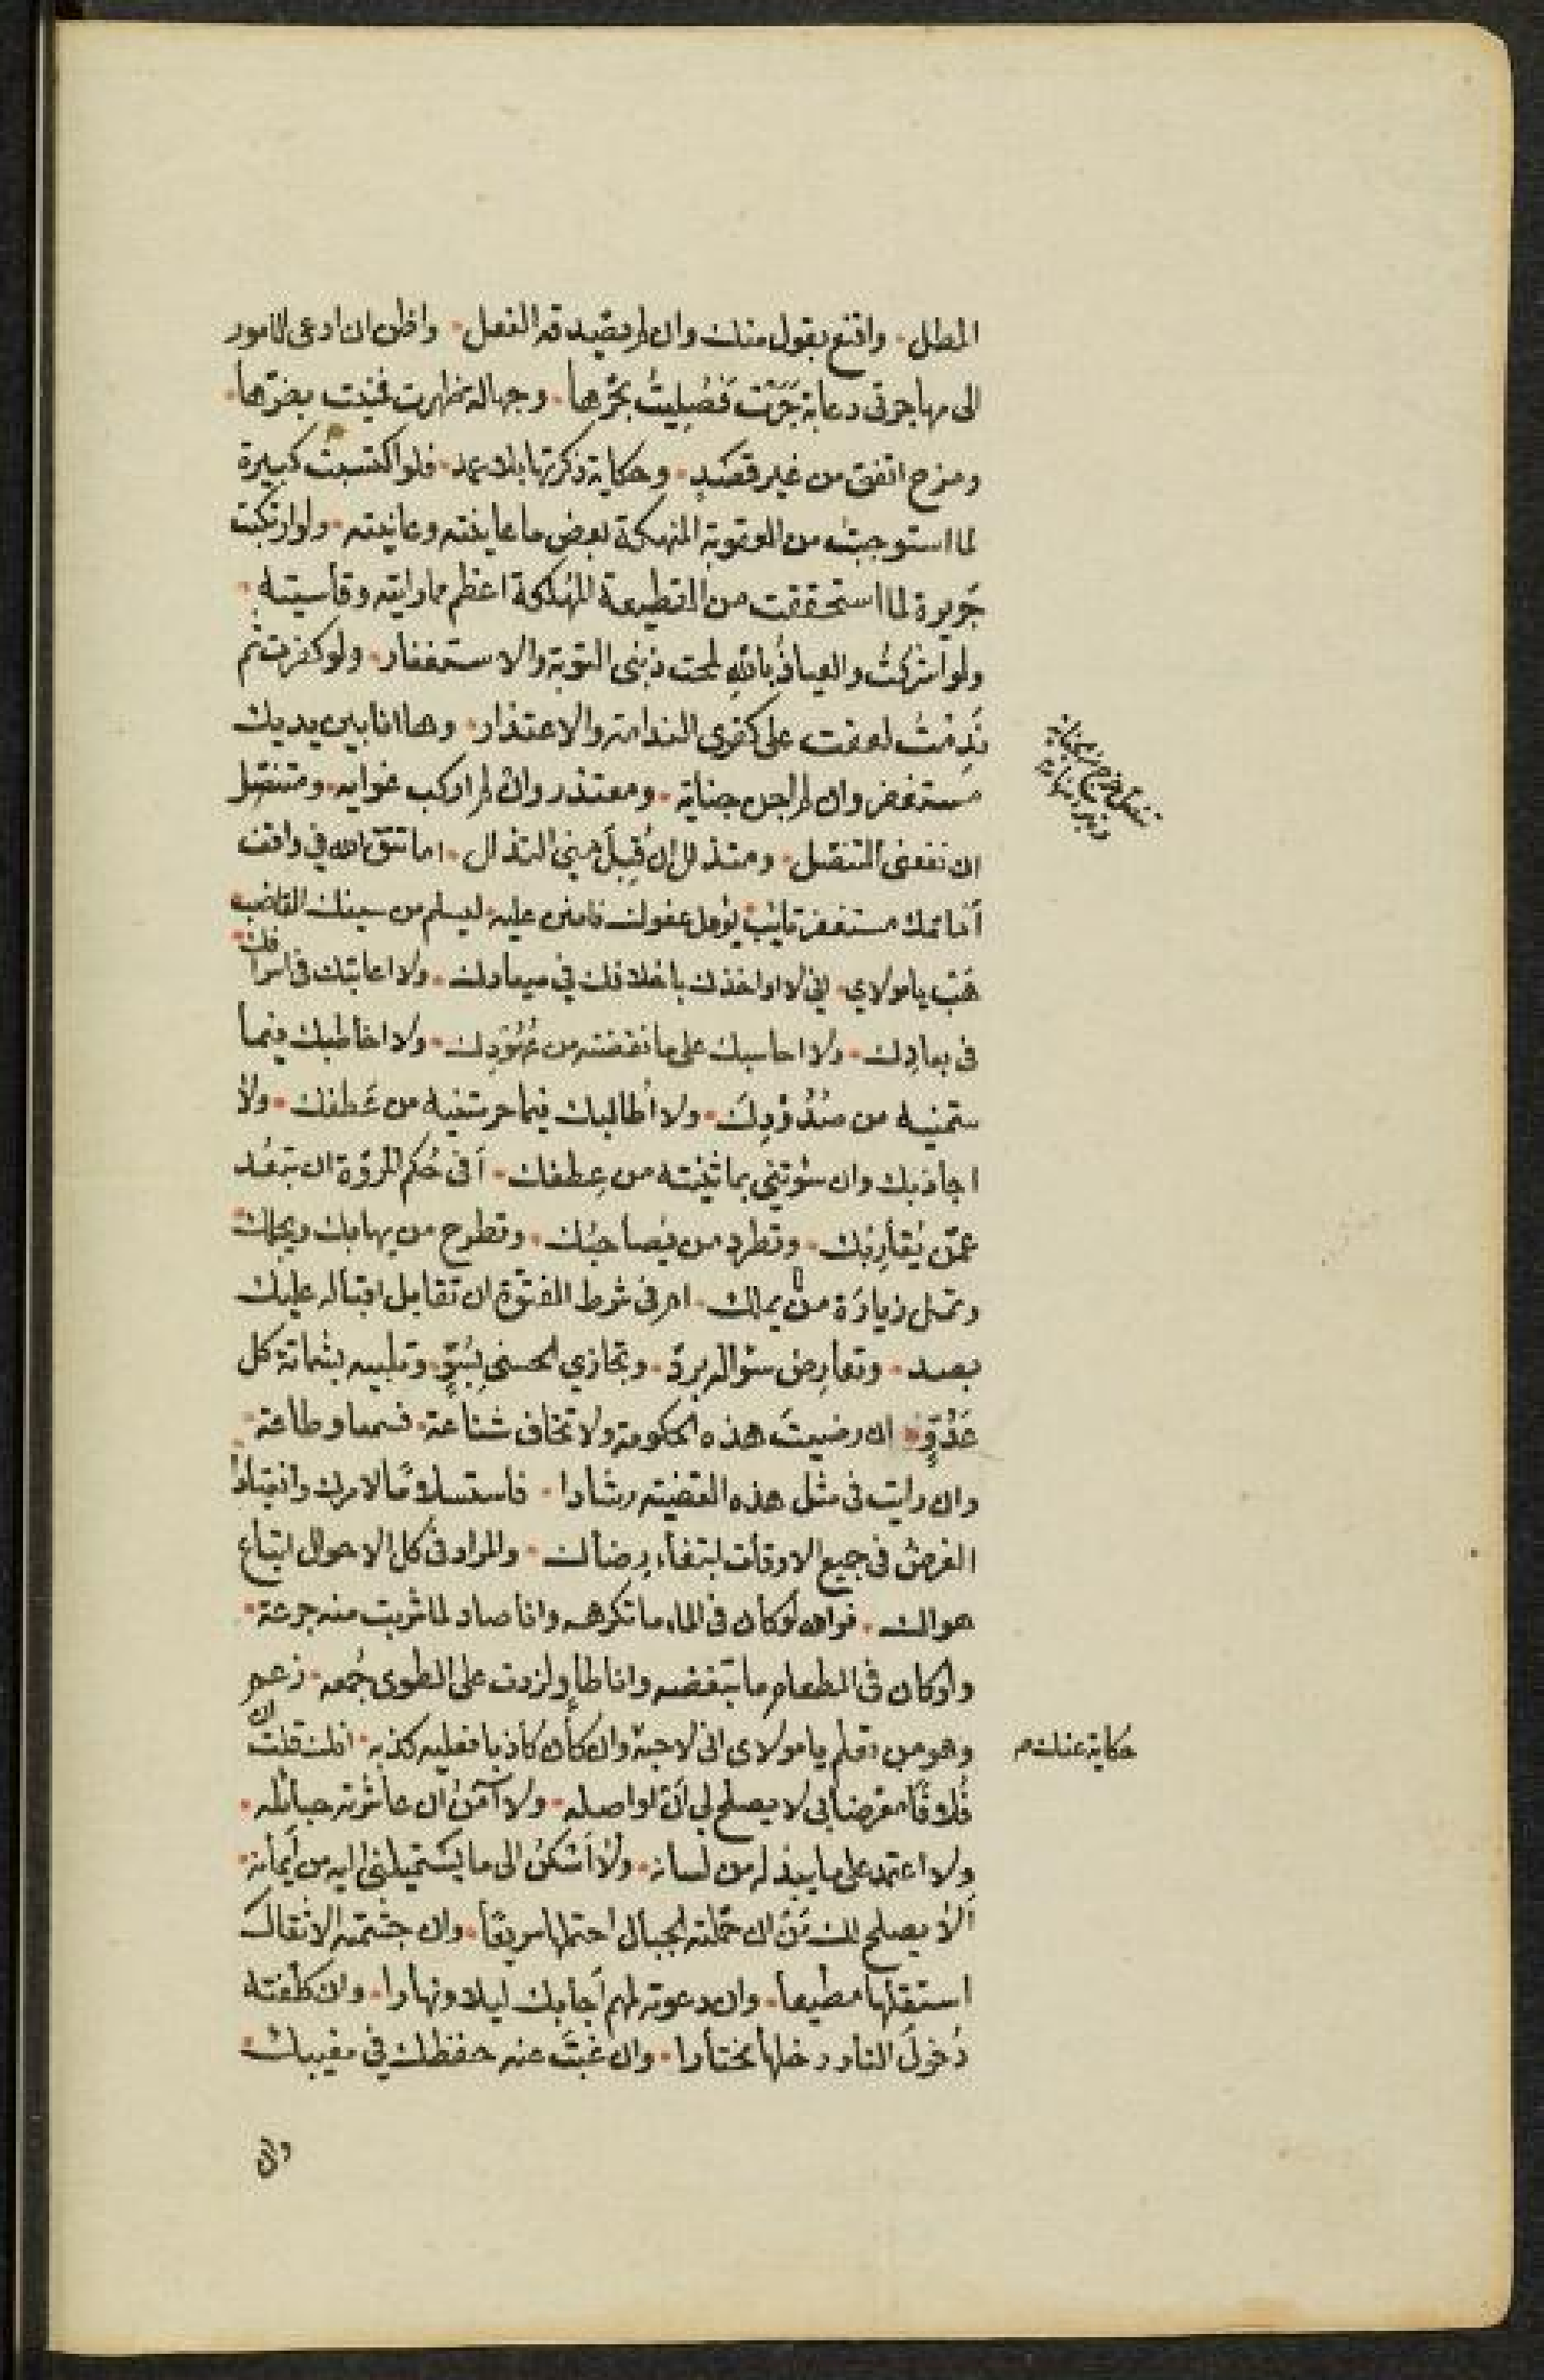 المطل · واقنع بقول منك وان لم تقيد قه الفعل · واظن ان ادعى الامور
الى مهاجرتى دعابة جَرَتْ فَصُلِيتُ بحَرِّها · وجهالة ظهرت فمنيت بضرّها ·
ومزح اتفق من غير قصَدٍ · وحكاية ذكرتها بلا عمد · فلو اكتسبتُ كبيرة
لما استوجبتُ من العقوبة المنهكة بعض ما عاينته وعانيته · ولو ارتكبت
جَريرة لما استحققت من القطيعة المُهْلكة اعظم مما رايته وقاسيته ·
ولو اشركتُ والعياذُ باللهِ لمحت ذنبى التوبة والاستغفار · ولو كفرت ثم
نَدِمْتُ لعفت على كفرى الندامة والاعتذار · وها انا بين يديك
مستغفر وان لم اجن جناية · ومعتذر وان لم اركب غوايه · ومتنصّل
ان نفعنى التنصّل · ومتذلل ان قُبِلَ منى التذلل · اما تتقى الله في واقف
أمامك مستغفر تائب يؤمل عفوك فامنن عليه ليسلم من سيفك القاضب ·
هَبْ يا مولاي · انى لا اواخذك باخلافك في ميعادك · ولا اعاتبك فى اسرافك
فى بعادك · ولا احاسبك على ما نقضته من عُهُوْدِك · ولا اخاطبك فيما
ستمنيه من صُدُوْدِكَ · ولا أطالبك فيما حرمتنيه من عَطفك · ولا
اجاذبك وان سؤتني بما ثنيته من عِطفك · أفى حُكم المروّة ان تبعُد
عمّن يُقاربُك · وتطرد من يُصاحبُك · وتطرح من يهابك ويجلك
وتمل زيارَة من لا يملك · ام فى شرط الفتوّة ان تقابل اقباله عليك
بصد · وتعارض سؤاله بردّ · وتجازي الحسنى بسُوْءٍ · وتبليه بشماتة كل
عَدُوّ · ان رضيتَ هذه الحكومة ولا تخاف شناعة · فسمعا وطاعة ·
وان رايت فى مثل هذه القضية رشادا · فاستسلامًا لامرك وانقيادا
الغرض فى جميع الاوقات ابتغاء رضاك · والمراد فى كل الاحوال اتباع
هواك · فوالله لو كان فى الماء ما تكرهه وانا صاد لما شربت منه جرعة ·
ولو كان فى الطعام ما تبغضه وانا طاوٍ لزدت على الطوى جُمعه · زعم
وهو من تعلم يا مولاى انى لاحبه وان كان كاذبا فعليه كذبه · انك قلت ان
فُلانًا معرضا بى لا يصلح لى أن اواصله · ولا آمَنُ ان عاشرته حبائله ·
ولا اعتمد على ما يبذله من لسانه · ولا أسْكُنُ الى ما يستميلنى اليه من أيمانه ·
ألا يصلح لك مَنْ ان حمّلته الجبال احتملها سريعًا · وان جشّمته الاثقال
استقلها مطيعا · وان دعوته لمهم أجابك ليلا ونهارا · وان كلفته
دُخولَ النار دخلها مختارا · وان غبتَ عنه حفظك في مغيبك
حكاية عنك م
وان